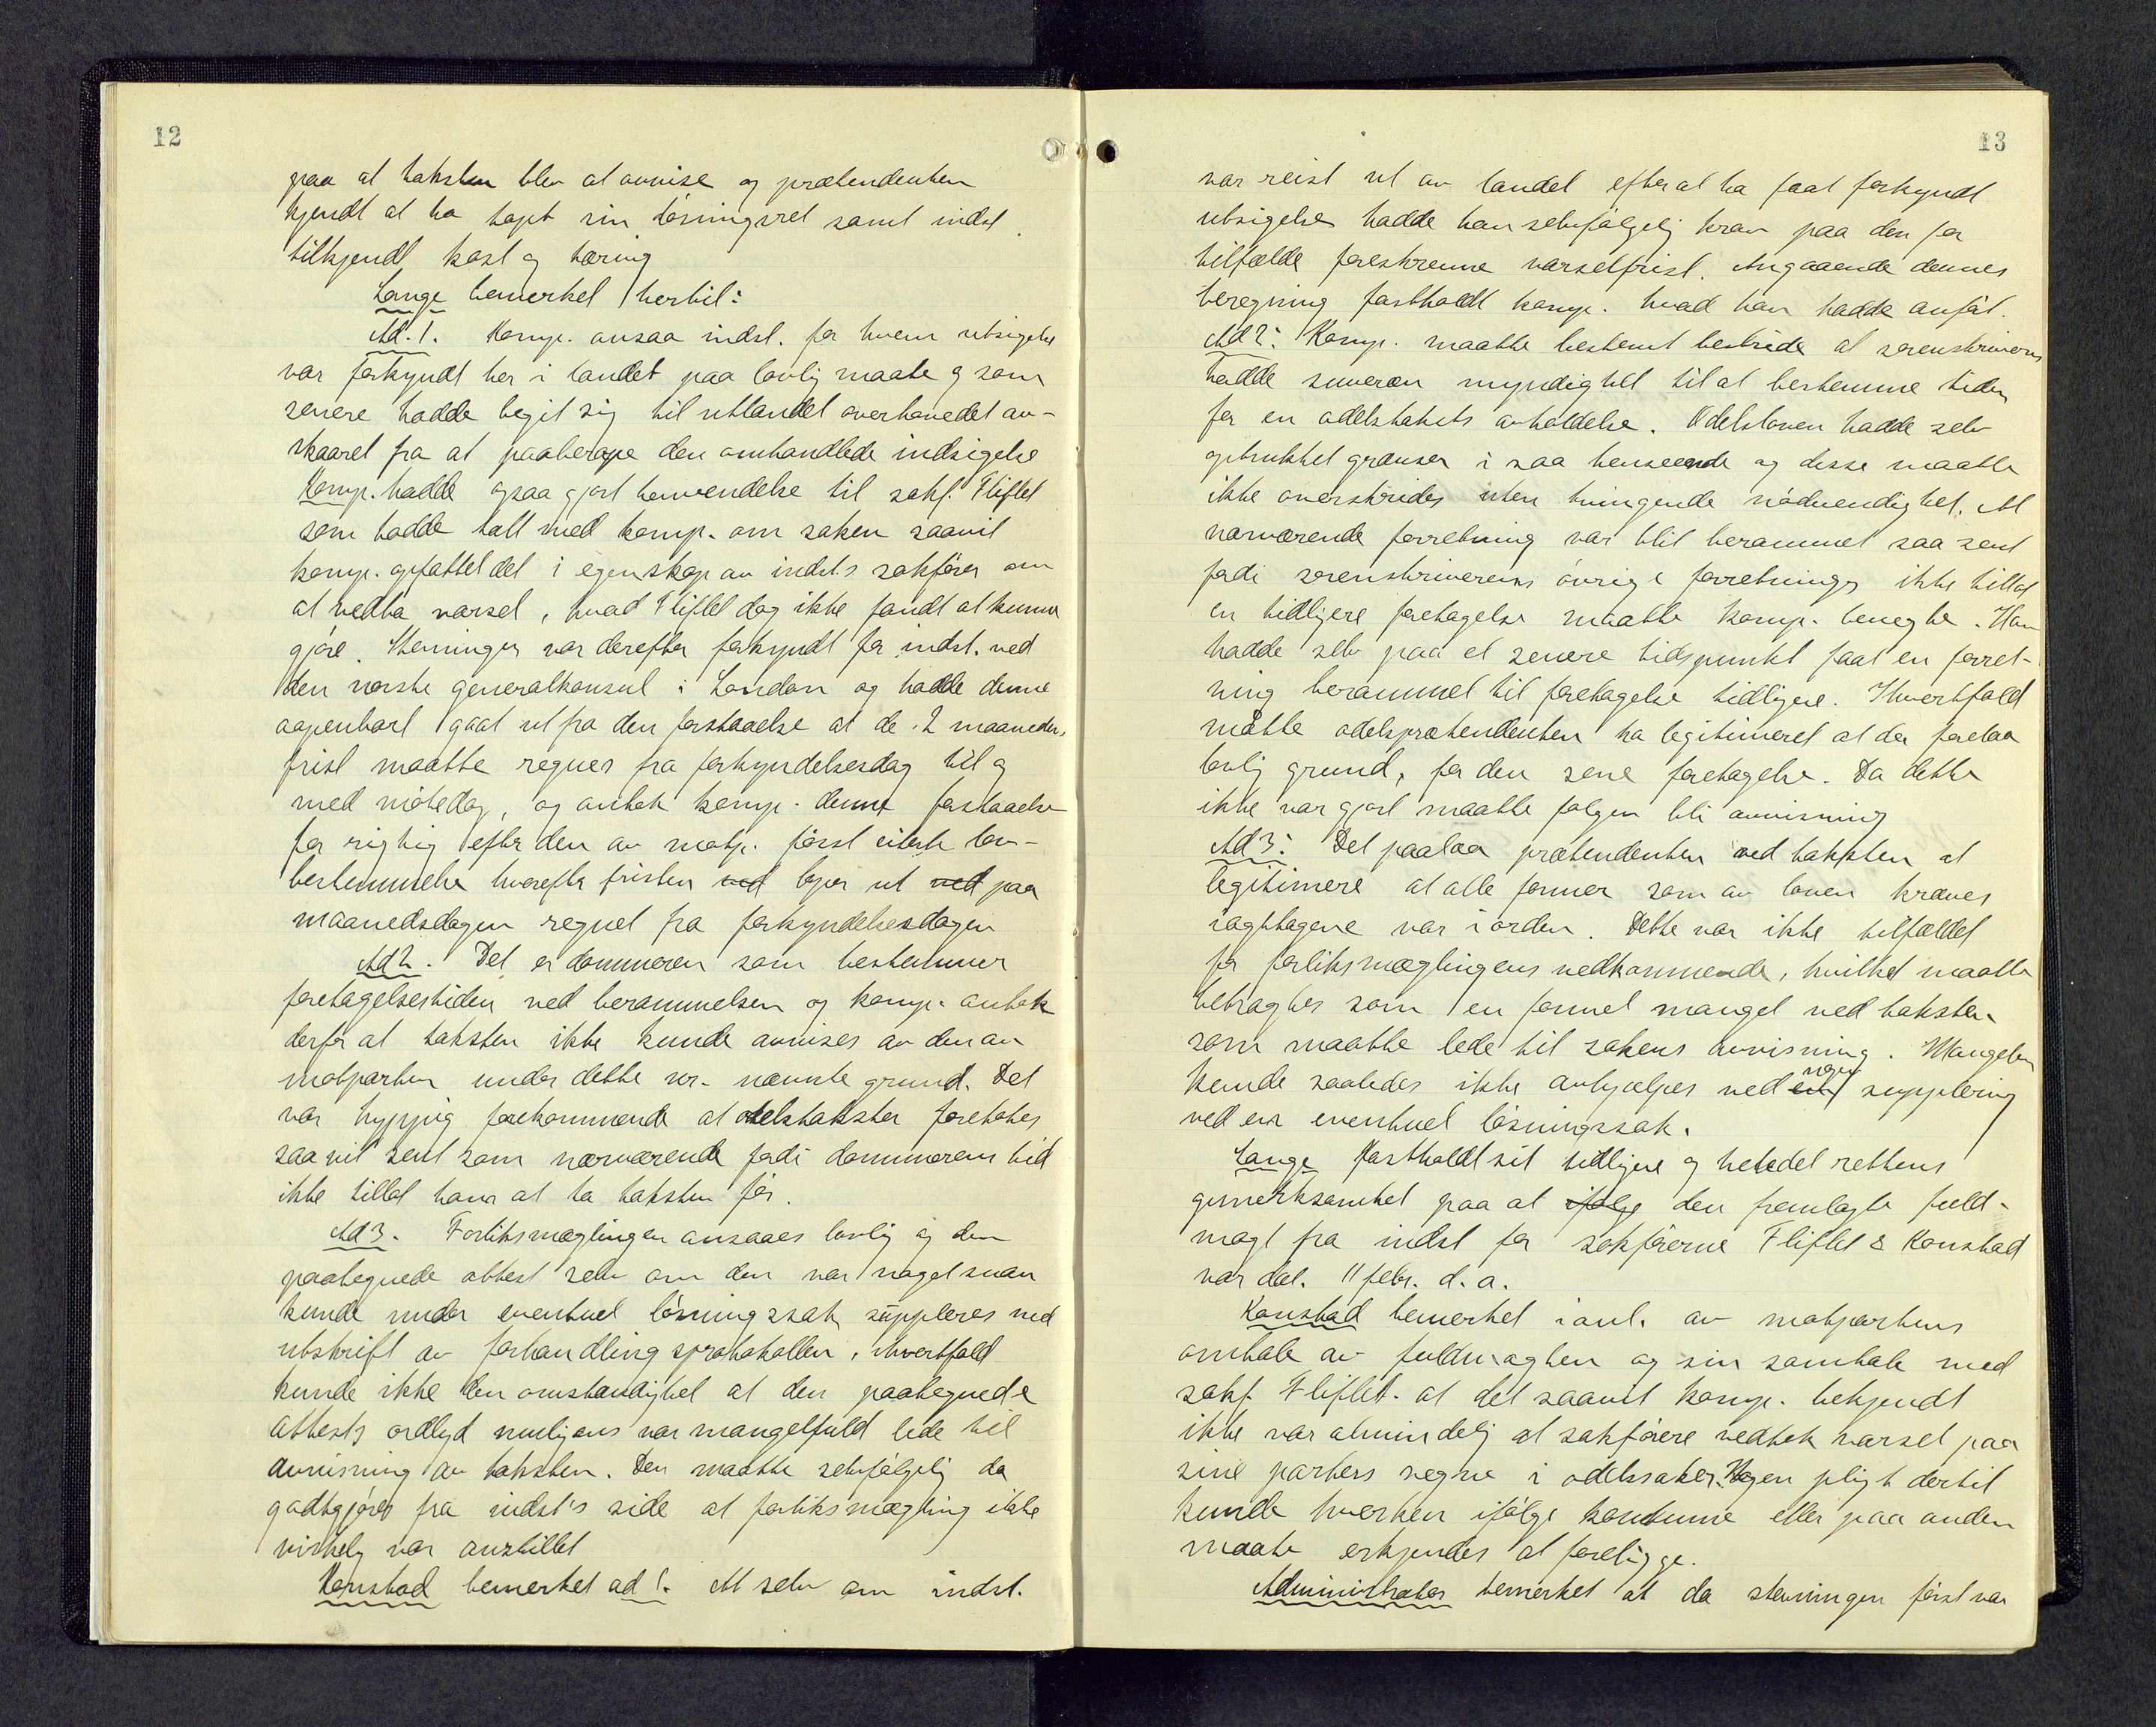 12
paa at taksten blev at avvise og prætendenten
kjendt at ha tapt sin løsningsret samt indst.
tilkjendt kost og tæring
Lange bemerket hertil:
Ad. 1. Komp. ansaa indst. for hvem utsigelse
var forkyndt her i landet paa lovlig maate og som
senere hadde begit sig til utlandet overhovedet av-
skaaret fra at paaberope den omhandlede indsigelse
Komp. hadde ogsaa gjort henvendelse til sakf. Fliflet
som hadde talt med komp. om saken saavit
komp. opfattet det i egenskap av indst.s sakfører om
at vedta varsel, hvad Fliflet dog ikke fandt at kunne
gjøre. Stevningen var derefter forkyndt for indst. ved
den norske generalkonsul i London og hadde denne
aapenbart gaat ut fra den forstaaelse at de 2 maaneders
frist maatte regnes fra forkyndelsesdag til og
med møtedag, og antok komp. denne forstaaelse
for rigtig efter den av motp. først citerte lov-
bestemmelse hvorefter fristen ved løper ut ved paa
maanedsdagen regnet fra forkyndelsesdagen
Ad 2. Det er dommeren som bestemmer
foretagelsestiden ved berammelsen og komp. antok
derfor at taksten ikke kunde avvises av den av
motparten under dette nr. nævnte grund. Det
var hyppig forekommende at odelstakster foretokes
saavit sent som nærværende fordi dommerens tid
ikke tillot ham at ta taksten før.
Ad 3. Forliksmæglingen ansaaes lovlig og den
paategnede attest selv om den var noget snau
kunde under eventuel løsningssak suppleres med
utskrift av forhandlingsprotokollen, ihvertfald
kunde ikke den omstændighet at den paategnede
attests ordlyd muligens var mangelfuld lede til
avvisning av taksten. Den maatte selvfølgelig da
godtgjøres fra indst's side at forliksmægling ikke
virkelig var anstillet
Konstad bemerket ad 1. At selv om indst.
13
var reist ut av landet efter at ha faat forkyndt
utsigelse hadde han selvfølgelig krav paa den for
tilfælde foreskrevne varselfrist. Angaaende dennes
beregning fastholdt komp. hvad han hadde anført.
Ad 2: Komp. maatte bestemt bestride at sorenskriveren
hadde suveræn myndighet til at bestemme tiden
for en odelstaksts avholdelse. Odelsloven hadde selv
optrukket grænser i saa henseende og disse maatte
ikke overskrides uten tvingende nødvendighet. At
nærværende forretning var blit berammet saa sent
fordi sorenskriverens øvrige forretninger ikke tillot
en tidligere foretagelse maatte komp. benegte. Han
hadde selv paa et senere tidspunkt faat en forret-
ning berammet til foretagelse tidligere. Ihvertfald
måtte odelsprætendenten ha legitimeret at der forelaa
lovlig grund, for den sene foretagelse. Da dette
ikke var gjort maatte følgen bli avvisning
Ad 3: Det paalaa prætendenten ved taksten at
legitimere at alle former som av loven kræves
iagttagene var i orden. Dette var ikke tilfældet
for forliksmæglingens vedkommende, hvilket maatte
betragtes som en formel mangel ved taksten
som maatte lede til sakens avvisning. Mangelen
kunde saaledes ikke avhjælpes ved en nogen supplering
ved en eventuel løsningssak.
Lange fastholdt sit tidligere og henledet rettens
opmerksomhet paa at ifølge den fremlagte fuld-
magt fra indst for sakførerne Fliflet & Konstad
var dat. 11 febr. d. a.
Konstad bemerket i anl. av motpartens
omtale av fuldmagten og sin samtale med
sakf. Fliflet. at det saavit komp. bekjendt
ikke var almindelig at sakførere vedtok varsel paa
sine parters vegne i odelssaker. Nogen pligt dertil
kunde hverken ifølge kontume eller paa anden
maate erkjendes at foreligge.
Administrator bemerket at da stevningen først var